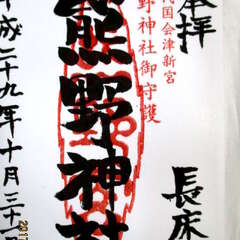 奉拝
代国会津新宮
野神社御守護
熊野神社
長床
平成二十九年十月三十一日